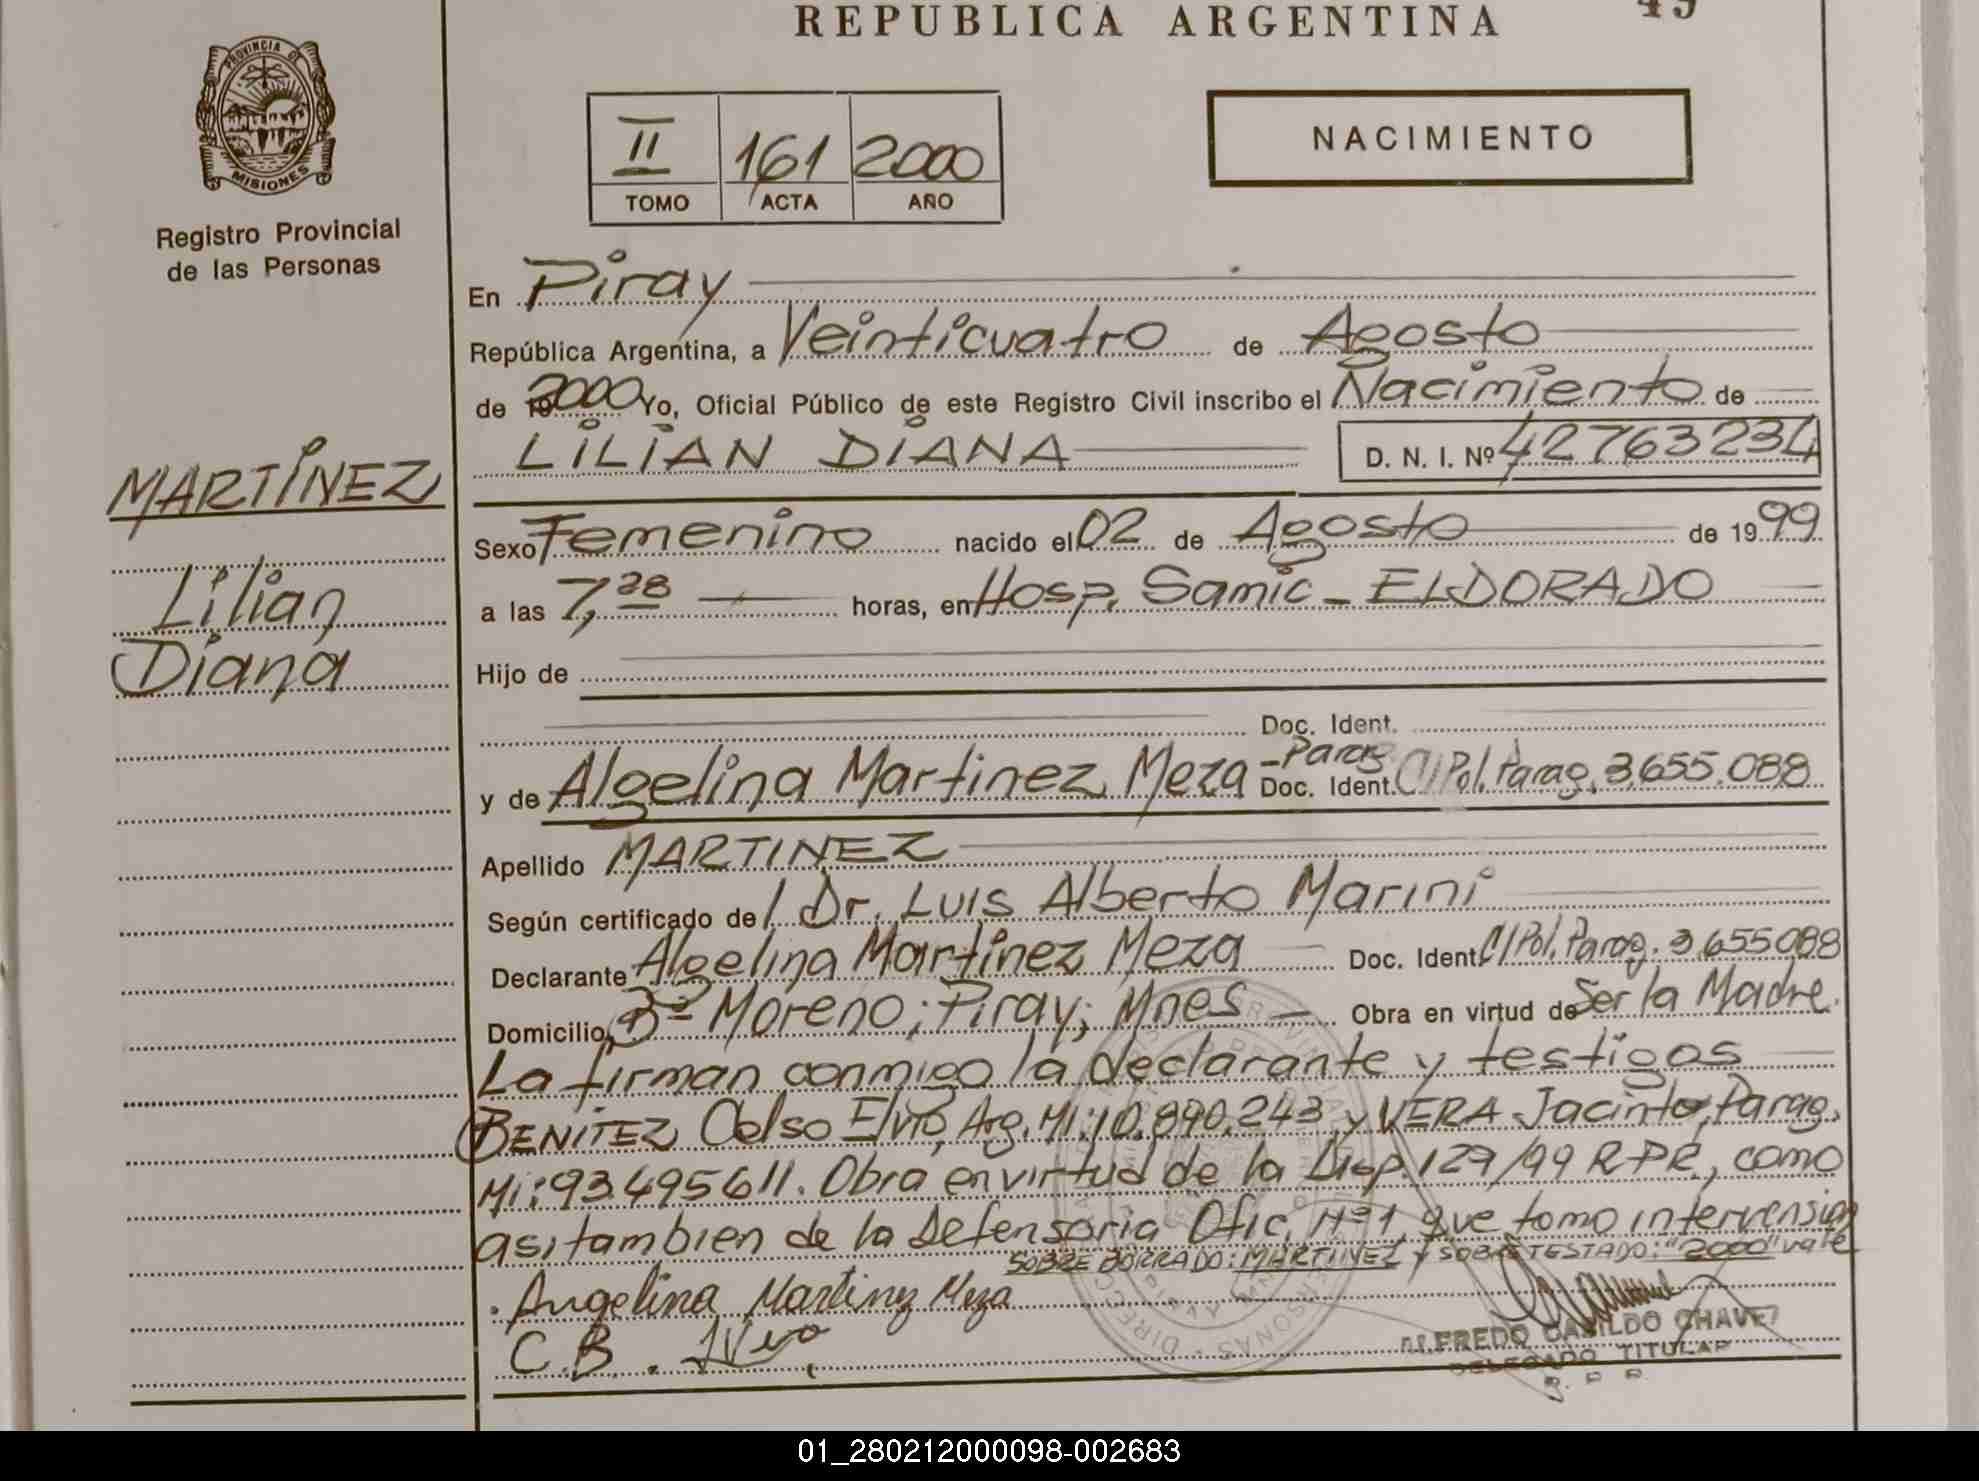 REPUBLICA ARGENTINA 49
PROVINCIA DE
MISIONES
Registro Provincial
de las Personas
II 161 2000
TOMO ACTA AÑO
NACIMIENTO
En Piray
República Argentina, a Veinticuatro de Agosto
de 192000 Yo, Oficial Público de este Registro Civil inscribo el Nacimiento de
LILIAN DIANA D. N. I. Nº 42763234
MARTINEZ
Lilian
Diana
Sexo Femenino nacido el 02 de Agosto de 1999
a las 7,28 horas, en Hosp. Samic - ELDORADO
Hijo de
Doc. Ident.
y de Algelina Martinez Meza - Parag. Doc. Ident. C/Pol. Parag. 3,655.088
Apellido MARTINEZ
Según certificado de / Dr. Luis Alberto Marini
Declarante Algelina Martinez Meza Doc. Ident. C/Pol. Parag. 3.655088
Domicilio Bº Moreno; Piray; Mnes Obra en virtud de Ser la Madre.
La firman conmigo la declarante y testigos
BENITEZ Celso Elvio, Arg. MI: 10.890.243 y VERA Jacinto, Parag.
MI: 93.495611. Obra en virtud de la Disp. 129/99 R.P.R, como
asi tambien de la Defensoria Ofic. Nº 1, que tomo intervension
SOBRE BORRADO: MARTINEZ y SOBRE TESTADO: "2000" vale
Angelina Martinez Meza
C.B. JVera
ALFREDO CASILDO CHAVEZ
DELEGADO TITULAR
R. P. P.
01_280212000098-002683